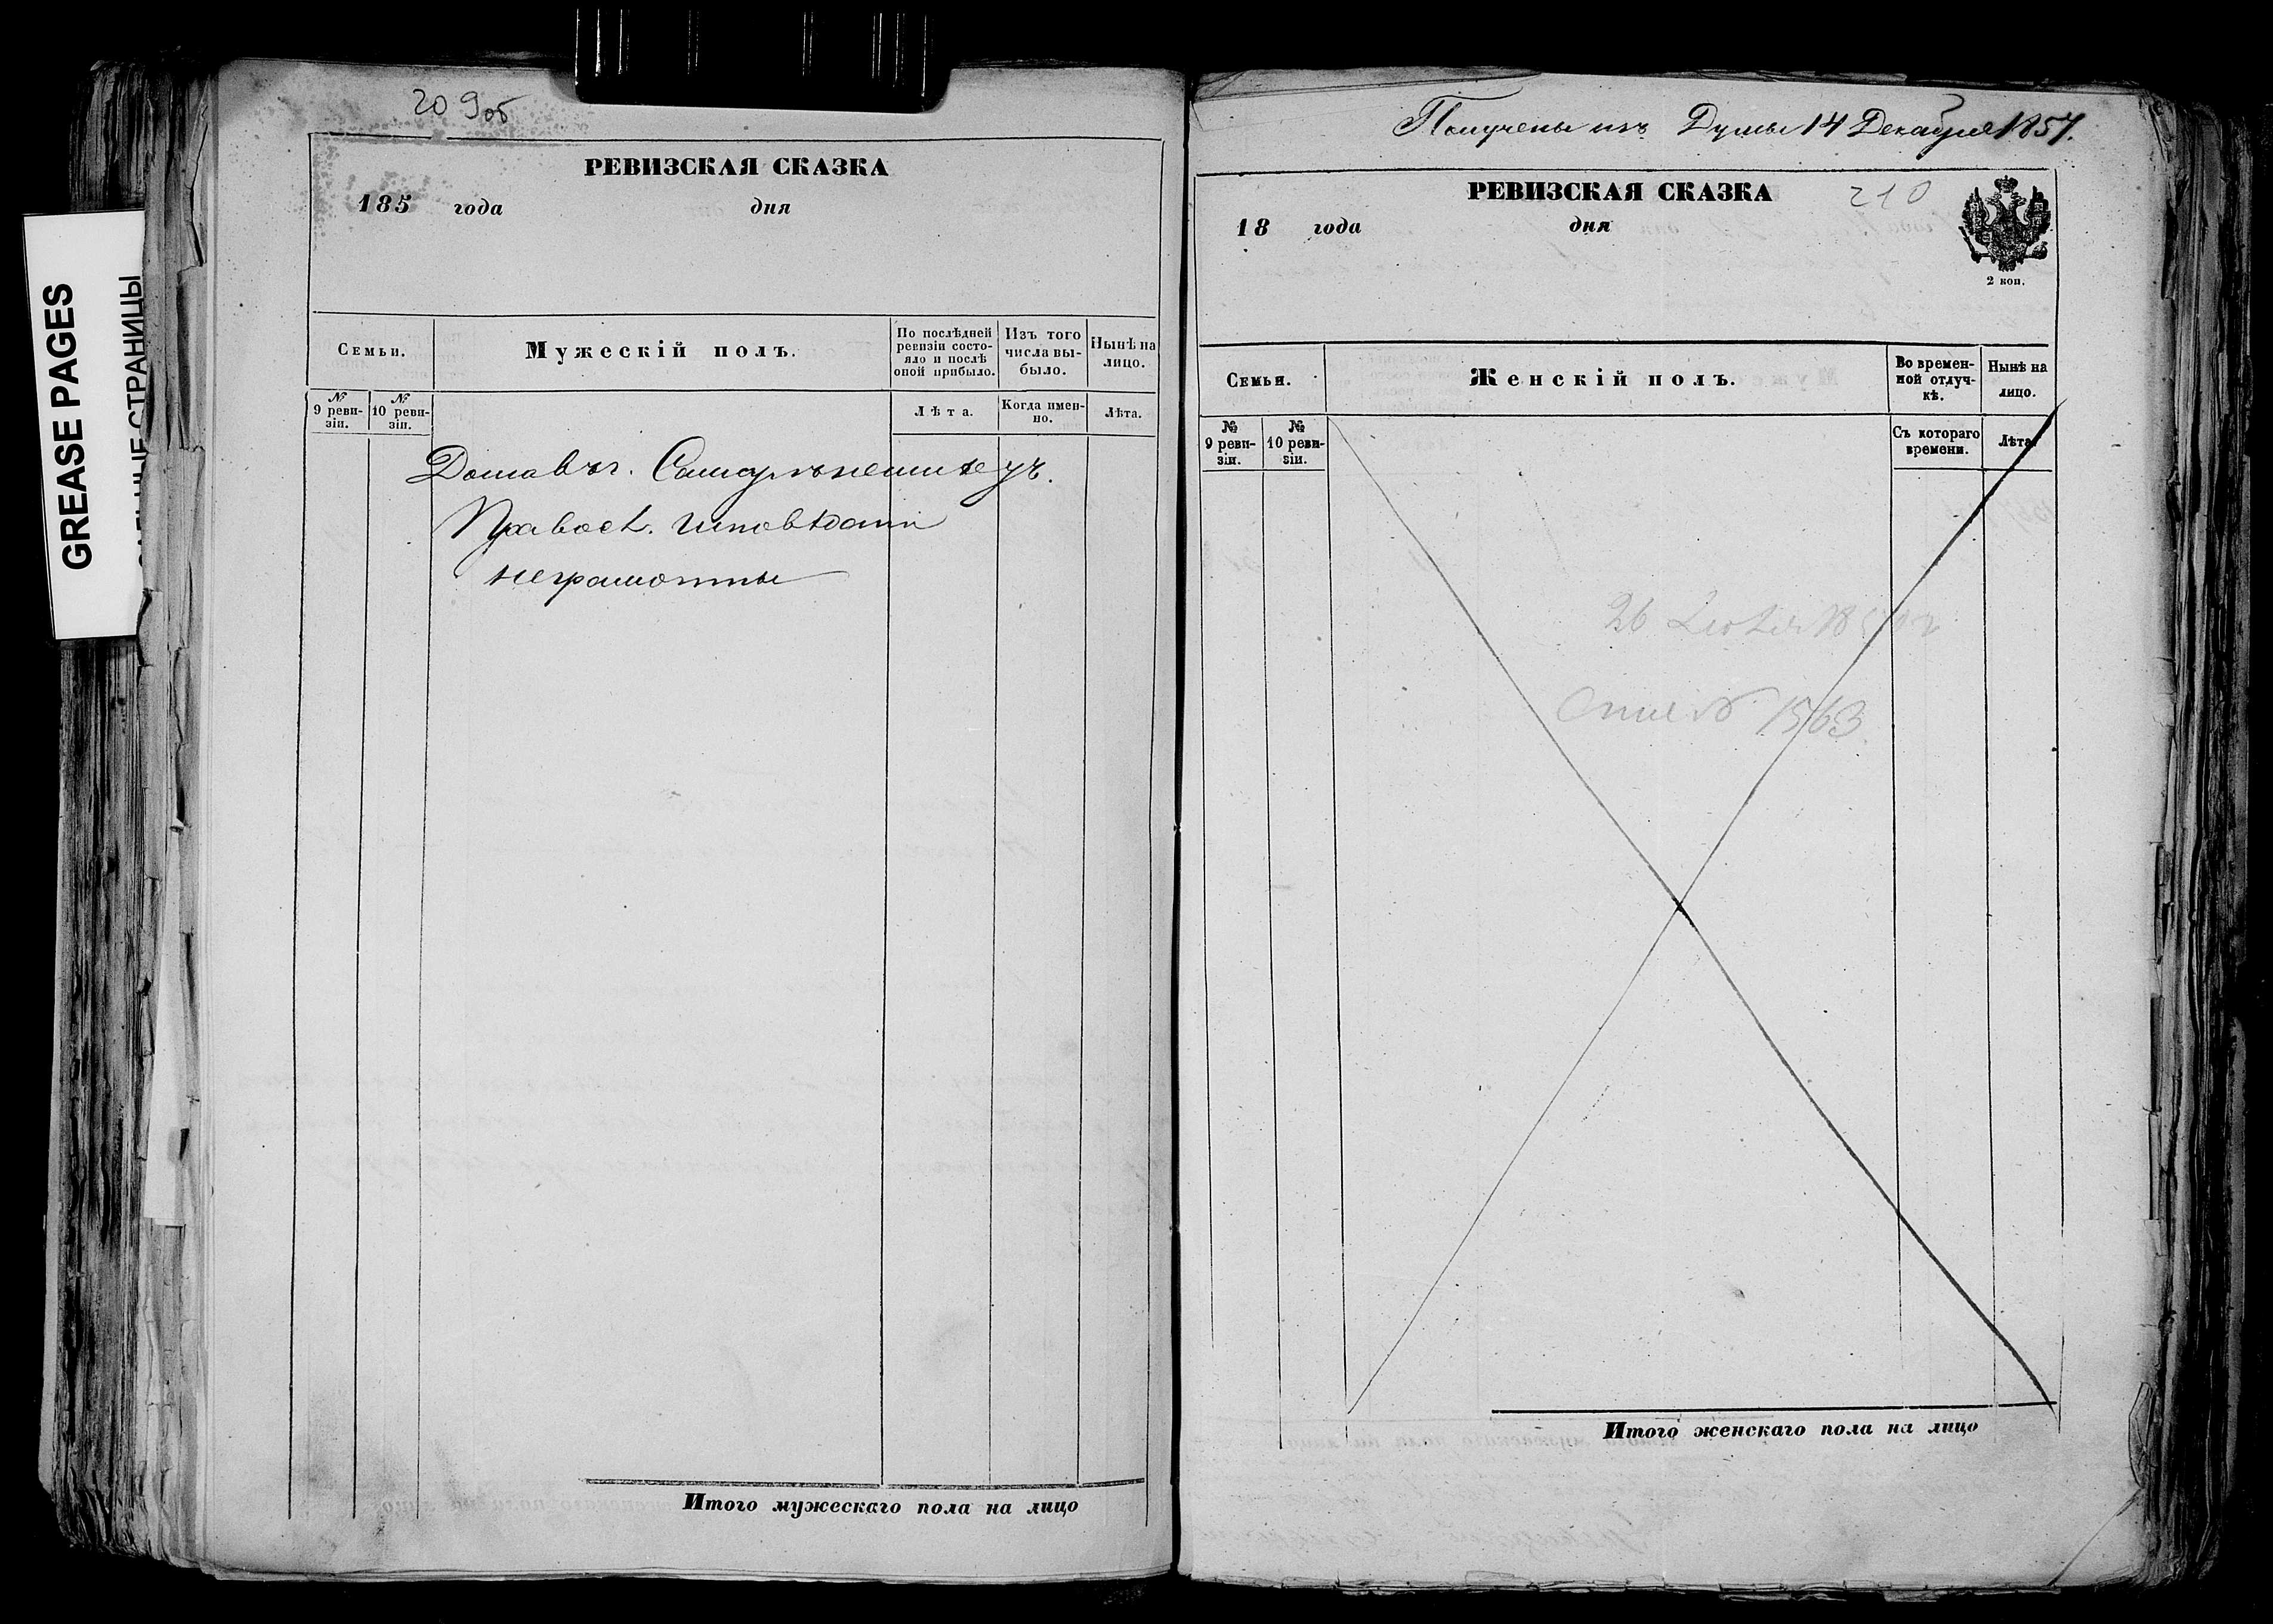 GREASE PAGES
209об
РЕВИЗСКАЯ СКАЗКА
185 года дня
Семьи.
Мужескій полъ.
По послѣдней ревизіи состояло и послѣ оной прибыло.
Изъ того числа выбыло.
Нынѣ на лицо.
№ 9 ревизіи.
№ 10 ревизіи.
Лѣта.
Когда именно.
Лѣта.
Правосл. исповѣданія
неграмотны
Итого мужескаго пола на лицо
Получены изъ Думы 14 Декабря 1857.
РЕВИЗСКАЯ СКАЗКА
210
18 года дня
2 коп.
Семьи.
Женскій полъ.
Во временной отлучкѣ.
Нынѣ на лицо.
№ 9 ревизіи.
№ 10 ревизіи.
Съ котораго времени.
Лѣта.
26
№ 1563
Итого женскаго пола на лицо